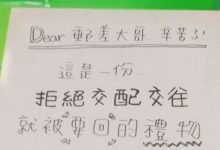 Dear 郵差大哥..辛苦了!
這是一份...
拒絕交配交往
就被要回的禮物